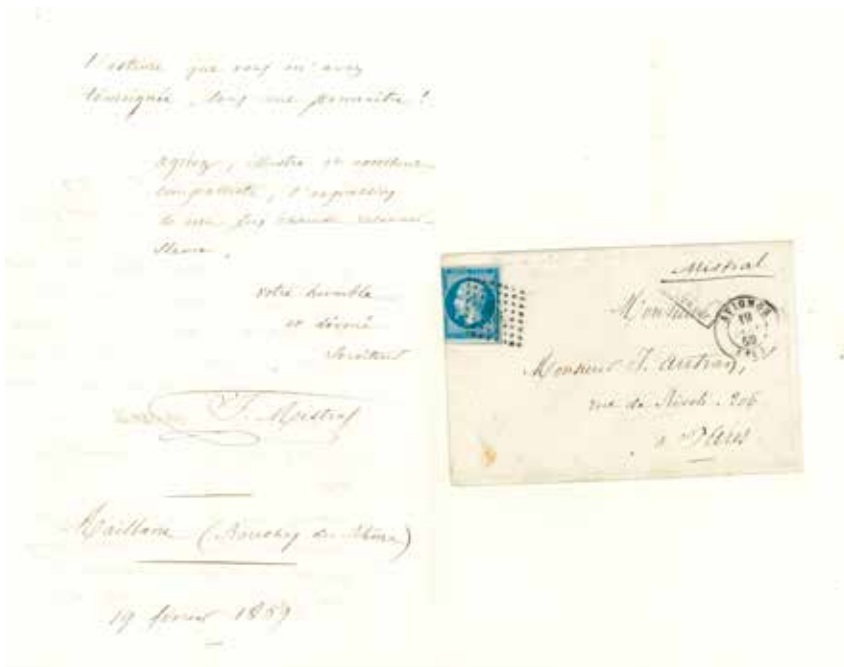 l'estime que vous m'avez
témoignée, sans me connaître !
agréez, illustre et
compatriote, l'expression
de ma plus
votre humble
et dévoué
serviteur
F. Mistral
Maillane (Bouches du Rhône)
19 février 1859
Mistral
Monsieur
Monsieur J. Autran,
rue de Rivoli. 206
à Paris
AVIGNON
19